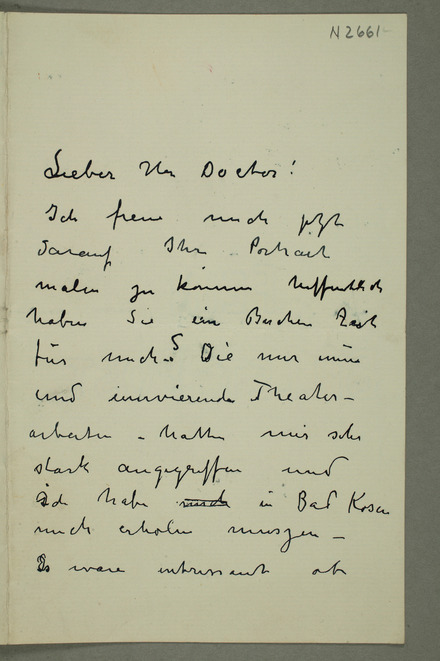 N2661
Lieber Herr Doctor!
Ich freue mich jetzt
darauf Ihr Portrait
malen zu können hoffentlich
haben Sie ein Bischen Zeit
für mich. Die nur
und Theater-
arbeiten - hatten mich sehr
stark angegriffen und
ich habe mich in Bad Kosen
mich erholen muszen -
Es ware intressant ob